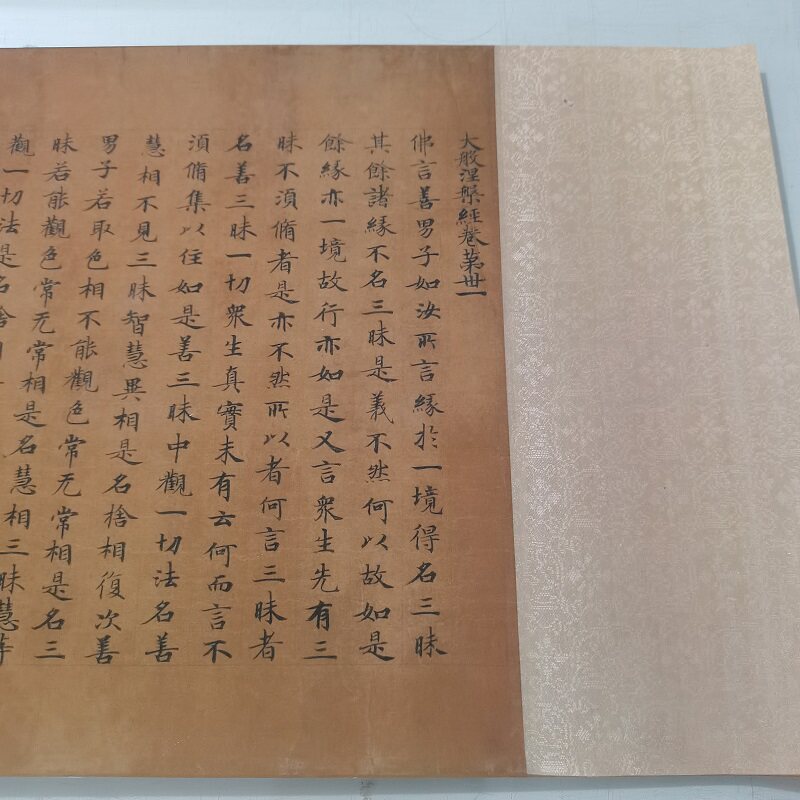 大般涅槃經卷第卅一
佛言善男子如汝所言緣於一境得名三昧
其餘諸緣不名三昧是義不然何以故如是
餘緣亦一境故行亦如是又言衆生先有三
昧不湏脩者是亦不然所以者何言三昧者
名善三昧一切衆生真實未有云何而言不
湏脩集以住如是善三昧中觀一切法名善
慧相不見三昧智慧異相是名捨相復次善
男子若取色相不能觀色常无常相是名三
昧若能觀色常无常相是名慧相三昧慧等
觀一切法是名捨相